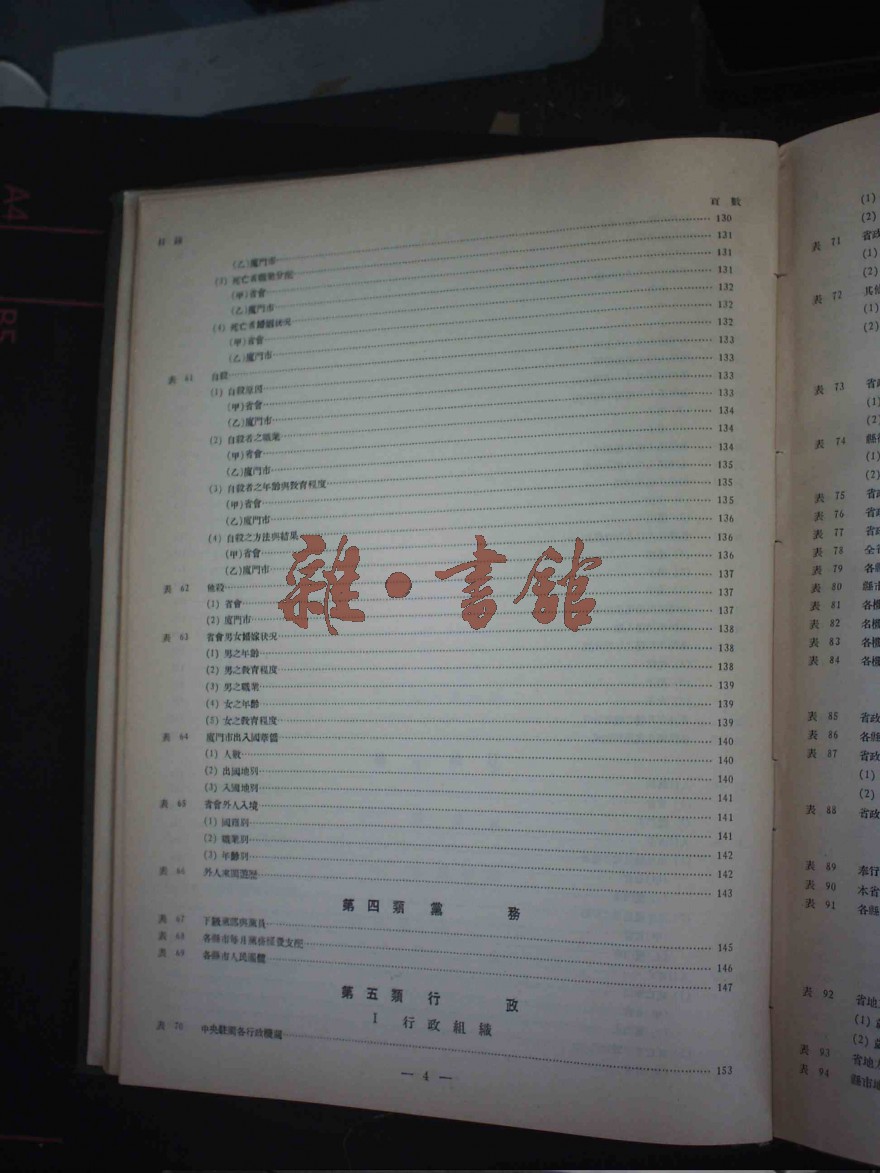 目錄
頁數
(乙)廈門市 130
(3) 死亡者職業分配 131
(甲)省會 131
(乙)廈門市 131
(4) 死亡者婚姻狀況 132
(甲)省會 132
(乙)廈門市 132
表 61 自殺 133
(1) 自殺原因 133
(甲)省會 133
(乙)廈門市 133
(2) 自殺者之職業 134
(甲)省會 134
(乙)廈門市 134
(3) 自殺者之年齡與教育程度 135
(甲)省會 135
(乙)廈門市 135
(4) 自殺之方法與結果 136
(甲)省會 136
(乙)廈門市 136
表 62 他殺 137
(1) 省會 137
(2) 廈門市 137
表 63 省會男女婚嫁狀況 138
(1) 男之年齡 138
(2) 男之教育程度 138
(3) 男之職業 139
(4) 女之年齡 139
(5) 女之教育程度 139
表 64 廈門市出入國華僑 140
(1) 人數 140
(2) 出國地別 140
(3) 入國地別 141
表 65 省會外人入境 141
(1) 國籍別 141
(2) 職業別 142
(3) 年齡別 142
表 66 外人來閩遊歷 143
第四類 黨 務
表 67 下級黨部與黨員 145
表 68 各縣市每月黨務經費支配 146
表 69 各縣市人民團體 147
第五類 行 政
I 行政組織
表 70 中央駐閩各行政機關 153
— 4 —
雜·書館
(1)
(2)
表 71 省政
(1)
(2)
表 72 其他
(1)
(2)
表 73 省政
(1)
(2)
表 74 縣
(1)
(2)
表 75 省政
表 76 省政
表 77 省政
表 78 全省
表 79 各縣
表 80 縣市
表 81 各機
表 82 各機
表 83 各機
表 84 各機
表 85 省政
表 86 各縣
表 87 省政
(1)
(2)
表 88 省政
表 89 奉行
表 90 本省
表 91 各縣
表 92 省地
(1)
(2)
表 93 省地
表 94 縣市地
A4
B5